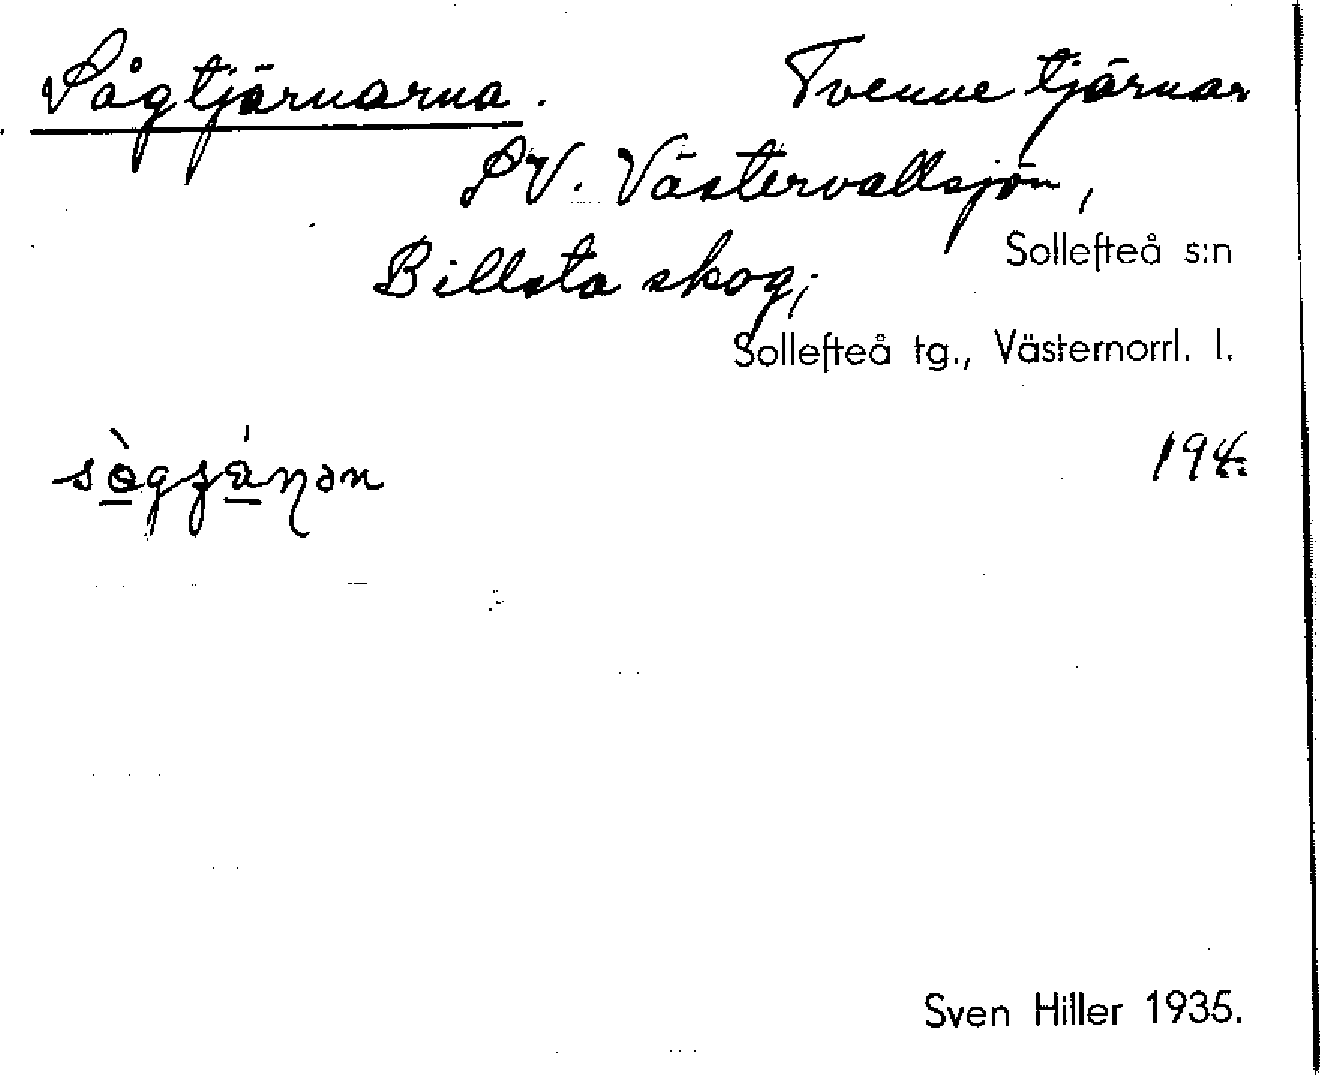 Sågtjärnarna. Tvenne tjärnar
SV. Västervallsjön,
Billsta skog,
Sollefteå s:n
Sollefteå tg., Västernorrl. l.
Sven Hiller 1935.